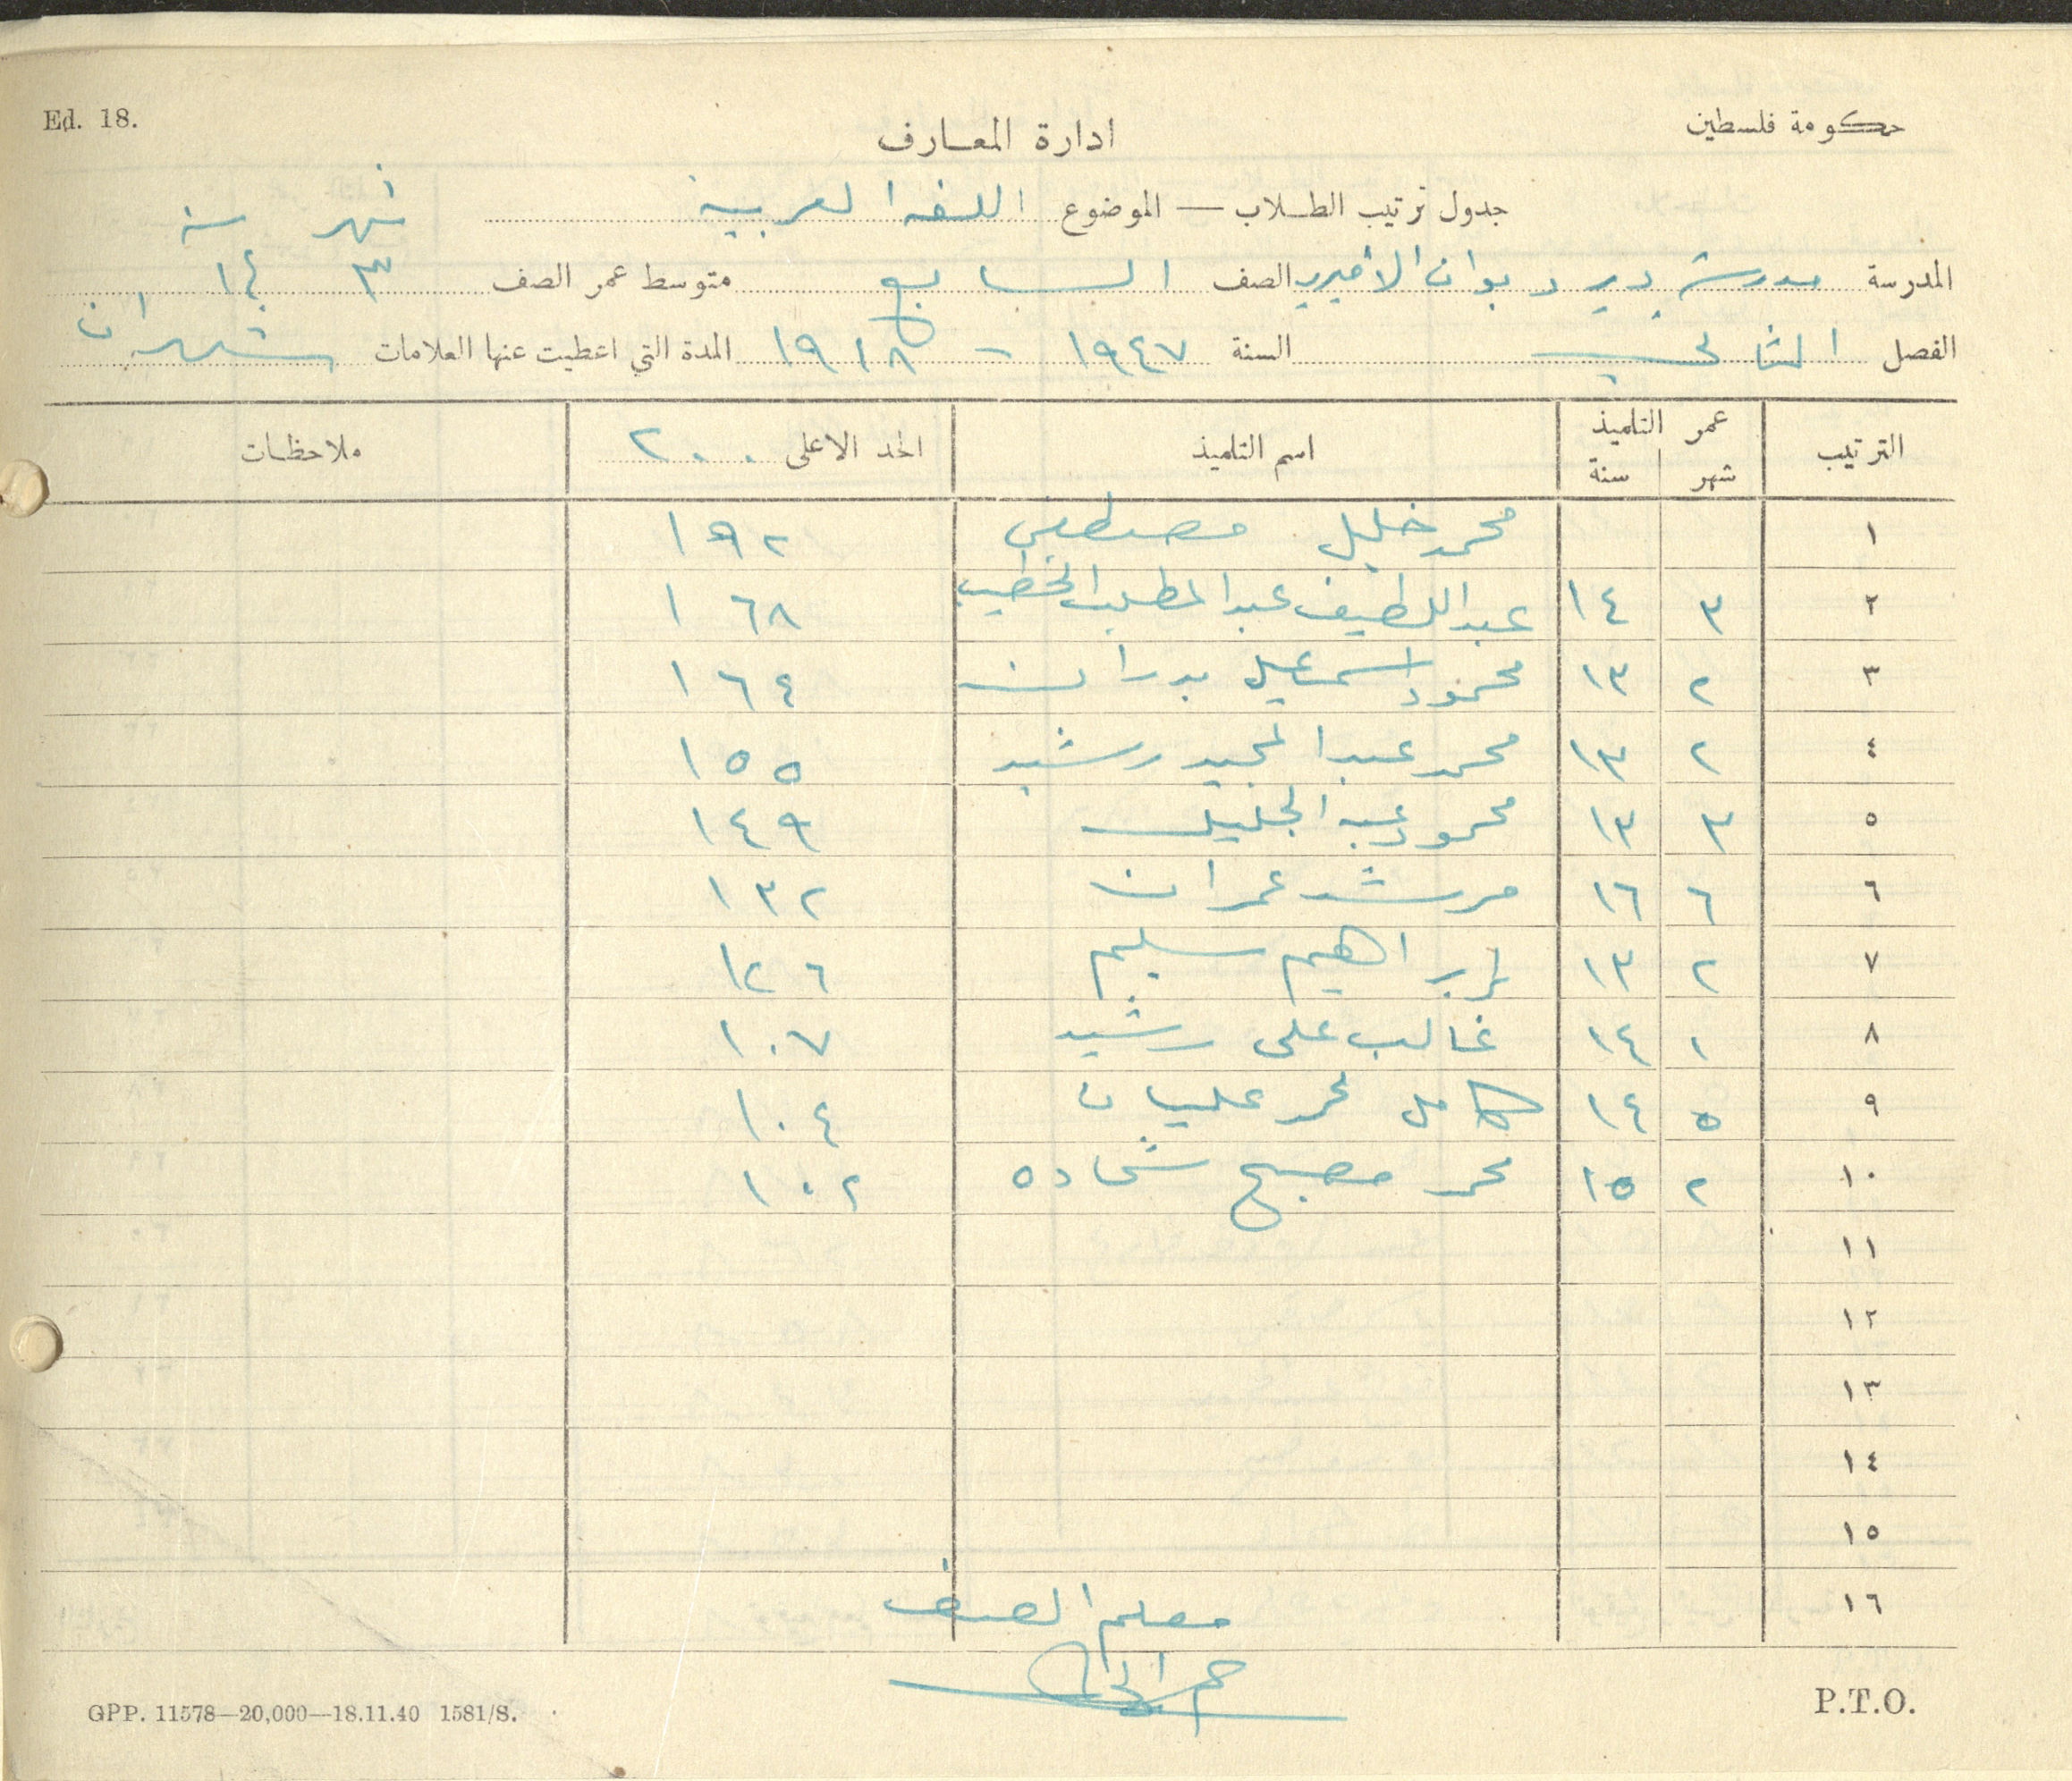 Ed. 18.
حكومة فلسطين
ادارة المعارف
جدول ترتيب الطلاب — الموضوع اللغة العربية شهر سنة
المدرسة مدرسة دير ديوان الاميرية الصف السابع متوسط عمر الصف ٣ ١٤
الفصل الثاني السنة ١٩٤٧ - ١٩٤٨ المدة التي اعطيت عنها العلامات شهران
الترتيب عمر التلميذ اسم التلميذ الحد الاعلى ٢٠٠ ملاحظات
شهر سنة
١ محمد خليل مصطفى ١٩٢
٢ ٣ ١٤ عبد اللطيف عبد المطلب الخطيب ١٦٨
٣ ٢ ١٣ محمود اسماعيل بدران ١٦٤
٤ ٢ ١٣ محمد عبد المجيد رشيد ١٥٥
٥ ٣ ١٣ محمود عبد الجليل ١٤٩
٦ ٦ ١٦ مرشد عمران ١٣٢
٧ ٢ ١٣ ابراهيم سليم ١٢٦
٨ ١ ١٤ غالب علي رشيد ١٠٧
٩ ٥ ١٤ كامل محمد عليان ١٠٤
١٠ ٢ ١٥ محمد مصبح شحاده ١٠٢
١١
١٢
١٣
١٤
١٥
١٦
معلم الصف
GPP. 11578—20,000—18.11.40 1581/S.
P.T.O.